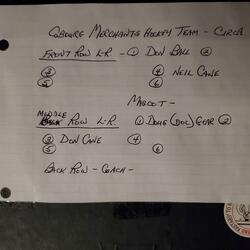 COBOURG MERCHANTS HOCKEY TEAM - CIRCA
FRONT ROW L-R - ① DON BALL ②
③ ④ NEIL CANE
⑤ ⑥
MASCOT -
MIDDLE ROW L-R ① DOUG (DOC) GOAR ②
③ DON CANE ④
⑤ ⑥
BACK ROW - COACH -